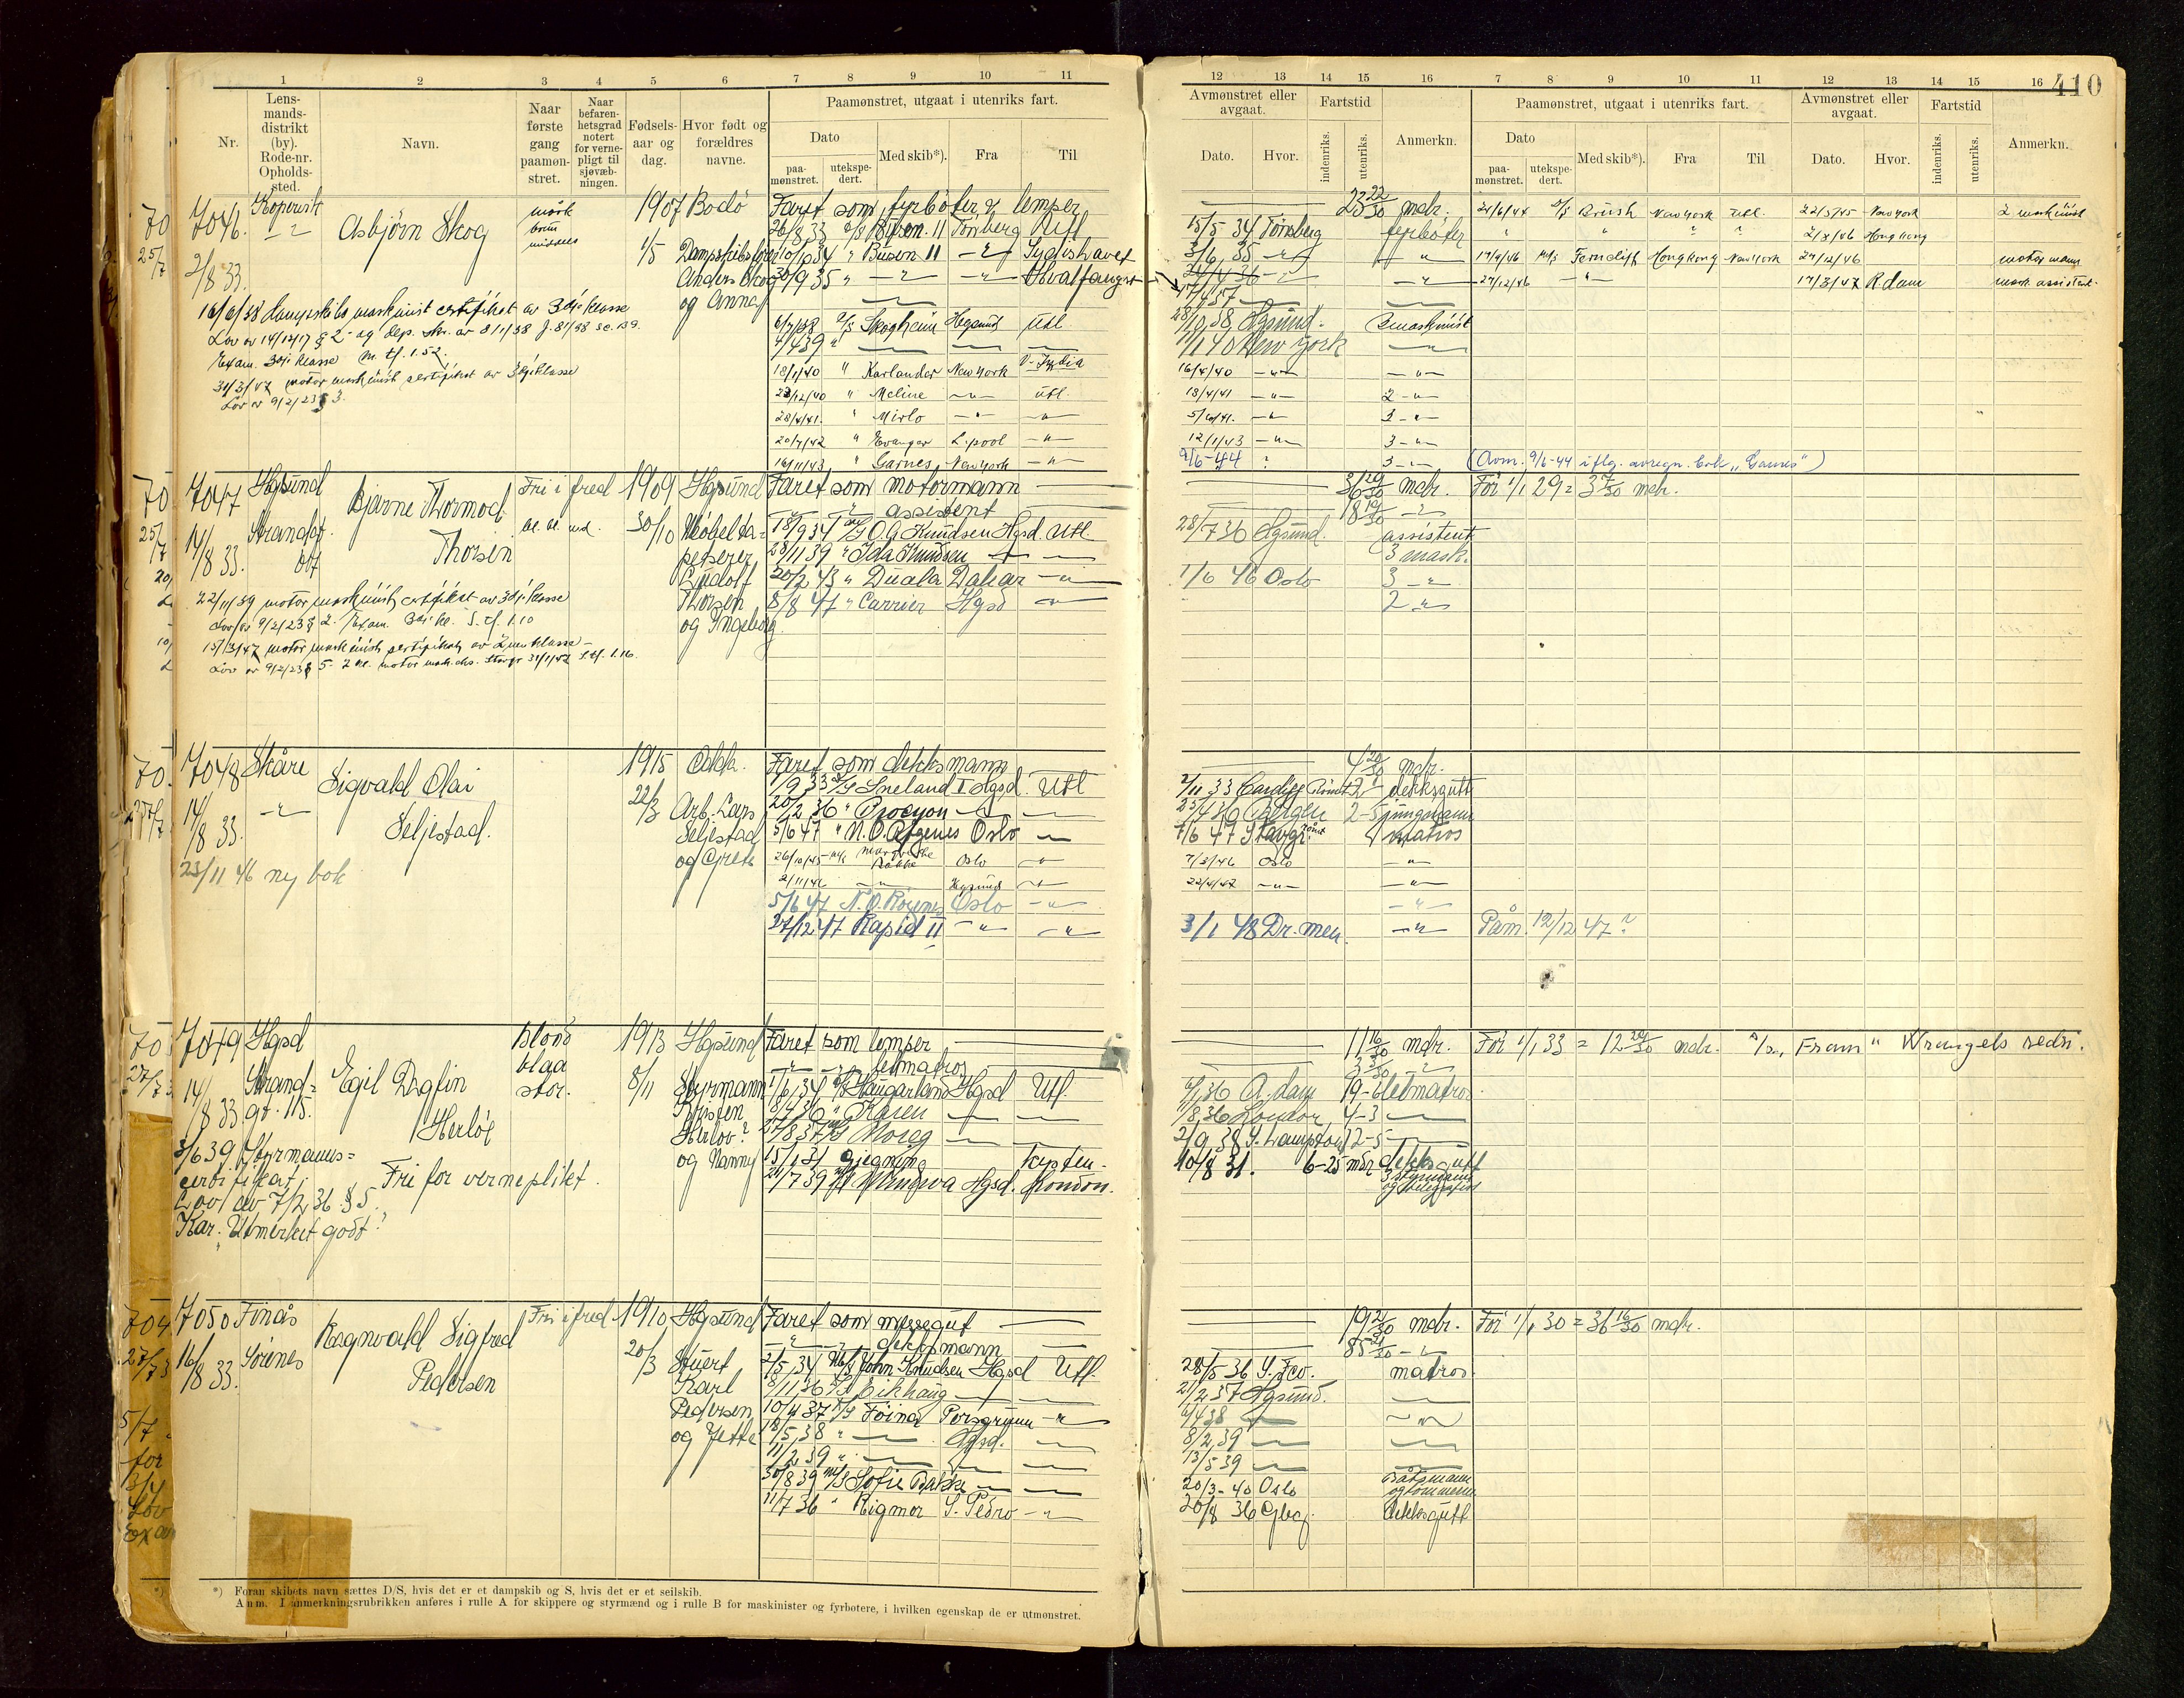 410
1 2 3 4 5 6 7 8 9 10 11
Nr.
Lens-
mands-
distrikt
(by).
Rode-nr.
Opholds-
sted.
Navn.
Naar
første
gang
paamøn-
stret.
Naar
befaren-
hetsgrad
notert
for verne-
pligt til
sjøvæb-
ningen.
Fødsels-
aar og
dag.
Hvor født og
forældres
navne.
Paamønstret, utgaat i utenriks fart.
Dato
paa-
mønstret.
utekspe-
dert.
Med skib*).
Fra
Til
12 13 14 15 16 7 8 9 10 11 12 13 14 15 16
Avmønstret eller
avgaat.
Dato. Hvor.
Fartstid
indenriks.
utenriks.
Anmerkn.
Paamønstret, utgaat i utenriks fart.
Dato
paa-
mønstret.
utekspe-
dert.
Med skib*).
Fra
Til
Avmønstret eller
avgaat.
Dato. Hvor.
Fartstid
indenriks.
utenriks.
Anmerkn.
7046. Kopervik
2/8 33.
Asbjørn Skog
mørk
brun
middels
1907 1/5
Bodø
Anders Skog
og Anna
16/6/38 dampskibs maskinist certifikat av 3dje klasse
Exam. 3dje klasse
31/3/47 motor maskinist sertifikat av 3dje klasse
Lov av 9/2/23 § 3.
Faret som fyrbøter & lemper 23 22/30 mdr.
26/8 33 Busen 11 Tønsberg Utl 15/5 34 Tønsberg fyrbøter
10/10 34 " Busen 11 Sydishavet 3/6 35
30/9 35 " Hvalfangst 24/4 36
17/4 37
6/7/38 D/S Skogheim Hgsund Utl 28/10 38 Hgsund. 3 maskinist
7/4 39 " 1/1 40 New York
18/1/40 " Karlander New York V-India 16/4/40
23/12/40 " Meline utl. 18/4/41 2 -"-
28/4/41. " Mirlo 5/6/41. 3 -"-
20/7/42 " Evanger L.pool 12/1/43 3 -"-
16/11/43 " Garnes New York 9/6-44 ? 3 -"- (Avm. 9/6-44 iflg. avregn. bok "Garnes")
24/6/44 D/S Brush New York utl. 22/5/45 New York 2 maskinist
2/3/46 Hong Kong
17/4/46 M/S Ferncliff Hong Kong New York 27/12/46 motormann
27/12/46 17/3/47 R.dam mask assistent
7047 Hgsund
14/8 33.
Strandgt.
Bjarne Thormod
Thorsen
Fri i fred
1909 30/10
Hgsund
Møbelta-
petserer
Ludolf
Thorsen
og Ingeborg
22/11/39 motor maskinist certifikat av 3dje klasse
15/3/47 motor maskinist sertifikat av 2nen klasse
Faret som motormann 36 29/30 mdr. Før 1/1 29 =
assistent 18 19/30
18/9 34 M/S O.A. Knudsen Hgsd Utl. 28/7 36 Hgsund. assistent
28/11 39 " Ida Knudsen 3 mask.
20/2 43 " Duala Dakar 1/6 46 Oslo 3 -"-
8/8 47 " Carrier Hgsd 2 -"-
7048 Skåre
14/8 33.
23/11 46 ny bok
Sigvald Olai
Seljestad.
1915 22/3
Odda.
Arb. Lars
Seljestad
og Grete
Faret som dekksmann 4 20/30 mdr.
7/9 33 D/S Sneland I Hgsd. Utl 2/11 33 Cardiff dekksgutt
20/2 36 " Procyon 25/4 36 Bergen 2-5 jungmann
5/6 47 " N.O. Rogenes Oslo 7/6 47 Stavgr. matros
26/10/45 M/S Margrethe
Bakke Oslo 7/3/46 Oslo
2/11/46 Hgsund 22/4/47
5/6 47 N.O. Rogenes Oslo
27/12 47 Rapid II 3/1 48 Dr.men. Påm. 12/12 47?
7049 Hgsd
14/8 33.
Strand=
gt. 115.
Egil Dagfin
Herløe
Blond
blaa
stor.
1913 8/11
Hgsund
Styrmann
Kristen
Herlov?
og Nanny
3/6 39 Styrmanns=
certifikat.
Lov av 7/2 36 § 5.
Kar. Utmerket godt?
Fri for verneplikt.
Faret som lemper 11 16/30 mdr. Før 1/1 33 = 12 24/30 mdr. D/S "Fram" Wrangels redri.
letmatros
1/6 34 D/S Haugarland Hgsd Utl. 4/1 36 A.dam 19-6 letmatros
8/4 36 " Karen 1/8 36 London 4-3
27/8 37 M/S Moreg 2/9 38 S.hampton 12-5
15/1 31 Gjegning Kysten. 10/8 31. 6-25 mdr dekksgutt
21/7 39 Minerva Hgsd. London. 3 styrmann
og telegrafist
7050 Finås
16/8 33.
Sørines
Ragnvald Sigfred
Pedersen
Fri i fred
1910 20/3
Hgsund
Stuert
Karl
Pedersen
og Jette
Faret som messegut 19 21/30 mdr. Før 1/1 30 = 36 16/30 mdr.
dekksmann 85 21/30
2/5 34 M/S John Knudsen Hgsd Utl. 28/5 36 S.Fco. matros
8/11 36 Eikhaug 21/2 37 Hgsund.
10/4 37 D/S Føina Porsgrunn 6/4 38
12/5 38 " Hgsd. 8/2 39
11/2 39 " 13/5 39
30/8 39 M/S Sofie Bakke 20/3-40 Oslo Båtsmann
og tømmerm
11/7 36 " Rigmor S. Pedro 20/8 36 Gbg. dekksgutt
*) Foran skibets navn sættes D/S, hvis det er et dampskib og S, hvis det er et seilskib.
Anm. I anmerkningsrubrikken anføres i rulle A for skippere og styrmænd og i rulle B for maskinister og fyrbøtere, i hvilken egenskap de er utmønstret.